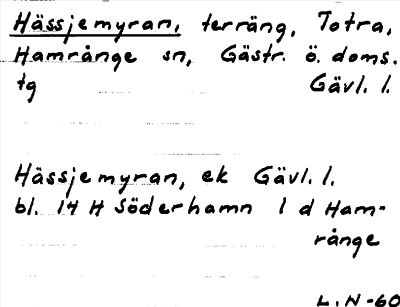 Hässjemyran, terräng, Totra,
Hamrånge sn, Gästr. ö. doms.
tg Gävl. l.
Hässjemyran, ek Gävl. l.
bl. 14 H Söderhamn 1 d Ham-
rånge
L. N -60